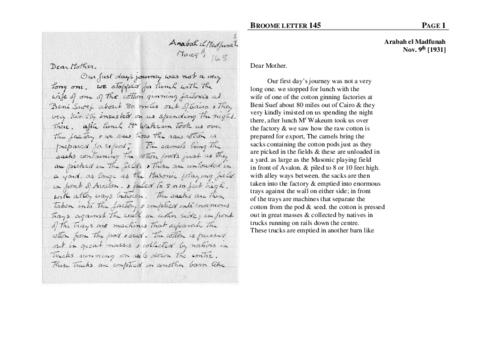 BROOME LETTER 145 PAGE 1
Arabah el Madfunah
Nov. 9th [1931]
Dear Mother.
Our first day's journey was not a very
long one. we stopped for lunch with the
wife of one of the cotton ginning factories at
Beni Suef about 80 miles out of Cairo & they
very kindly insisted on us spending the night
there, after lunch Mr Wakeum took us over
the factory & we saw how the raw cotton is
prepared for export, The camels bring the
sacks containing the cotton pods just as they
are picked in the fields & these are unloaded in
a yard. as large as the Masonic playing field
in front of Avalon. & piled to 8 or 10 feet high.
with alley ways between. the sacks are then
taken into the factory & emptied into enormous
trays against the wall on either side; in front
of the trays are machines that separate the
cotton from the pod & seed. the cotton is pressed
out in great masses & collected by natives in
trucks running on rails down the centre.
These trucks are emptied in another barn like
Arabah el Madfunah
Nov 9th
145
Dear Mother.
Our first day's journey was not a very
long one. we stopped for lunch with the
wife of one of the cotton ginning factories at
Beni Suef about 80 miles out of Cairo & they
very kindly insisted on us spending the night
there. after lunch Mr Wakeum took us over
the factory & we saw how the raw cotton is
prepared for export, The camels bring the
sacks containing the cotton pods just as they
are picked in the fields & these are unloaded in
a yard. as large as the Masonic playing field
in front of Avalon. & piled to 8 or 10 feet high.
with alley ways between. the sacks are then
taken into the factory & emptied into enormous
trays against the wall on either side; in front
of the trays are machines that separate the
cotton from the pod & seed. the cotton is pressed
out in great masses & collected by natives in
trucks running on rails down the centre.
These trucks are emptied in another barn like